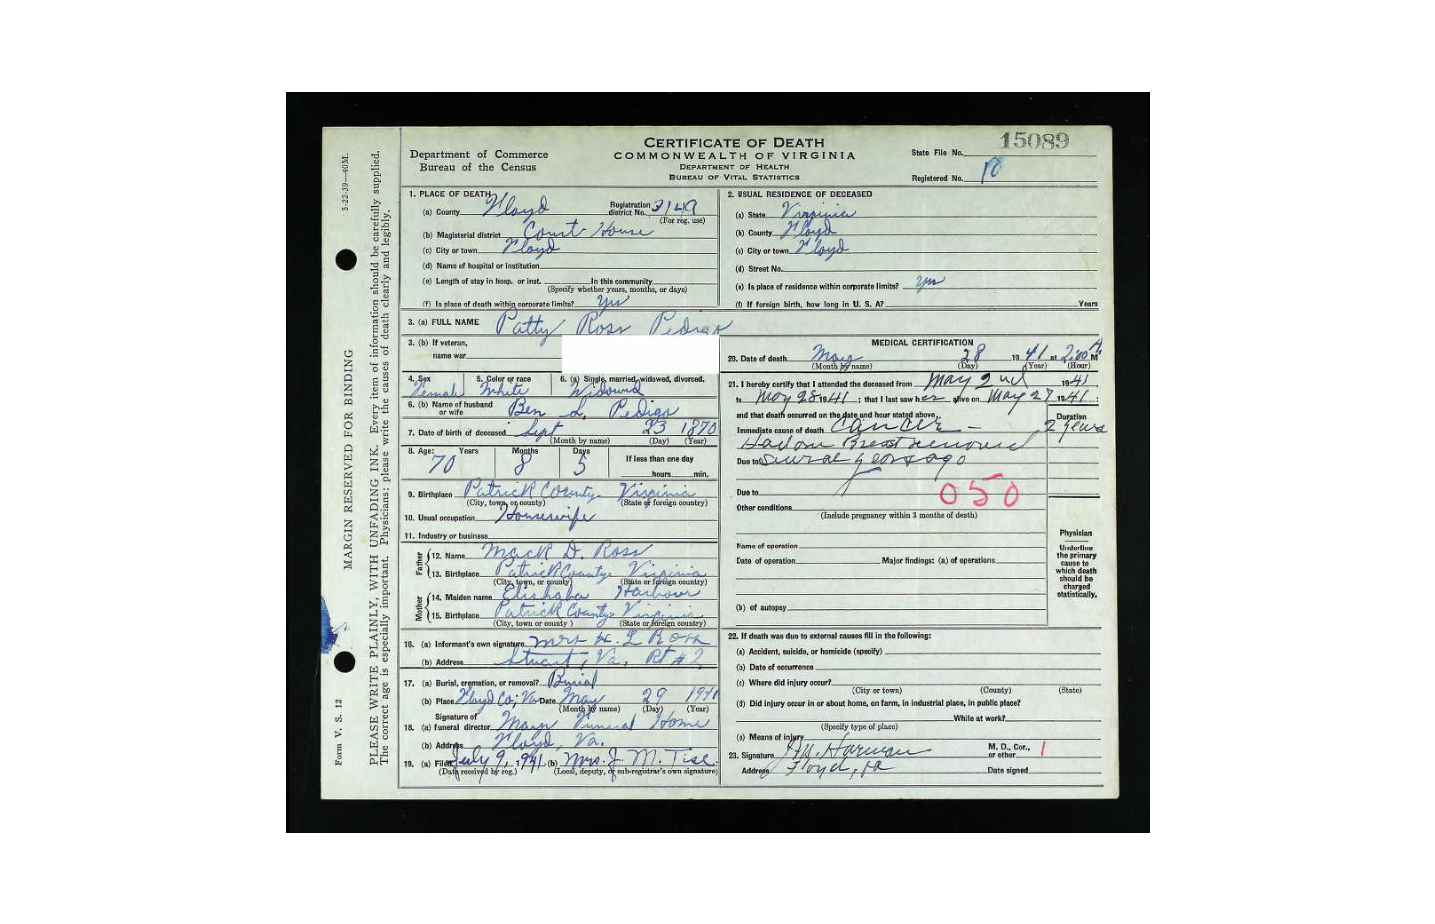 15089
CERTIFICATE OF DEATH
COMMONWEALTH OF VIRGINIA
DEPARTMENT OF HEALTH
BUREAU OF VITAL STATISTICS
Department of Commerce
Bureau of the Census
State File No.
Registered No. 10
5-22-39—40M.
MARGIN RESERVED FOR BINDING
Form V. S. 12
PLEASE WRITE PLAINLY, WITH UNFADING INK. Every item of information should be carefully supplied.
The correct age is especially important. Physicians: please write the causes of death clearly and legibly.
1. PLACE OF DEATH
(a) County Floyd Registration district No. 3149
(For reg. use)
(b) Magisterial district Court House
(c) City or town Floyd
(d) Name of hospital or institution
(e) Length of stay in hosp. or inst. In this community
(Specify whether years, months, or days)
(f) Is place of death within corporate limits? Yes
2. USUAL RESIDENCE OF DECEASED
(a) State Virginia
(b) County Floyd
(c) City or town Floyd
(d) Street No.
(e) Is place of residence within corporate limits? yes
(f) If foreign birth, how long in U. S. A? Years
3. (a) FULL NAME Patty Ross Pedigo
3. (b) If veteran,
name war
4. Sex 5. Color or race 6. (a) Single, married, widowed, divorced.
Female White Widowed
6. (b) Name of husband or wife Ben L. Pedigo
7. Date of birth of deceased Sept 23 1870
(Month by name) (Day) (Year)
8. Age: Years Months Days If less than one day
70 8 5 hours min.
9. Birthplace Patrick County Virginia
(City, town, or county) (State or foreign country)
10. Usual occupation Housewife
11. Industry or business
Father
12. Name Mack D. Ross
13. Birthplace Patrick County Virginia
(City, town, or county) (State or foreign country)
Mother
14. Maiden name Elishaba Harbour
15. Birthplace Patrick County Virginia
(City, town or county) (State or foreign country)
16. (a) Informant's own signature Mrs H. L Ross
(b) Address Stuart, Va, Rt #2
17. (a) Burial, cremation, or removal? Burial
(b) Place Floyd Co; Va Date May 29 1941
(Month by name) (Day) (Year)
18. Signature of
(a) funeral director Funeral Home
(b) Address Floyd, Va.
19. (a) Filed July 9, 1941. (b) Mrs. J. M.
(Date received by reg.) (Local, deputy, or sub-registrar's own signature)
MEDICAL CERTIFICATION
20. Date of death May 28 1941 at 2:00 A M
(Month by name) (Day) (Year) (Hour)
21. I hereby certify that I attended the deceased from May 2nd 1941
to May 28 1941; that I last saw her alive on May 27 1941;
and that death occurred on the date and hour stated above. Duration
Immediate cause of death Cancer — 2 years
Had one Breast removed
Due to several years ago
Due to
050
Other conditions
(Include pregnancy within 3 months of death)
Name of operation
Date of operation Major findings: (a) of operations
(b) of autopsy
Physician
Underline
the primary
cause to
which death
should be
charged
statistically.
22. If death was due to external causes fill in the following:
(a) Accident, suicide, or homicide (specify)
(b) Date of occurrence
(c) Where did injury occur?
(City or town) (County) (State)
(d) Did injury occur in or about home, on farm, in industrial place, in public place?
While at work?
(Specify type of place)
(e) Means of injury
23. Signature Harman M. D., Cor., or other 1
Address Floyd, Va Date signed